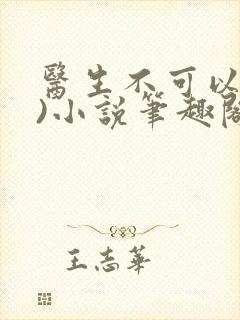 醫生不可以
)小說筆趣閣
王志華